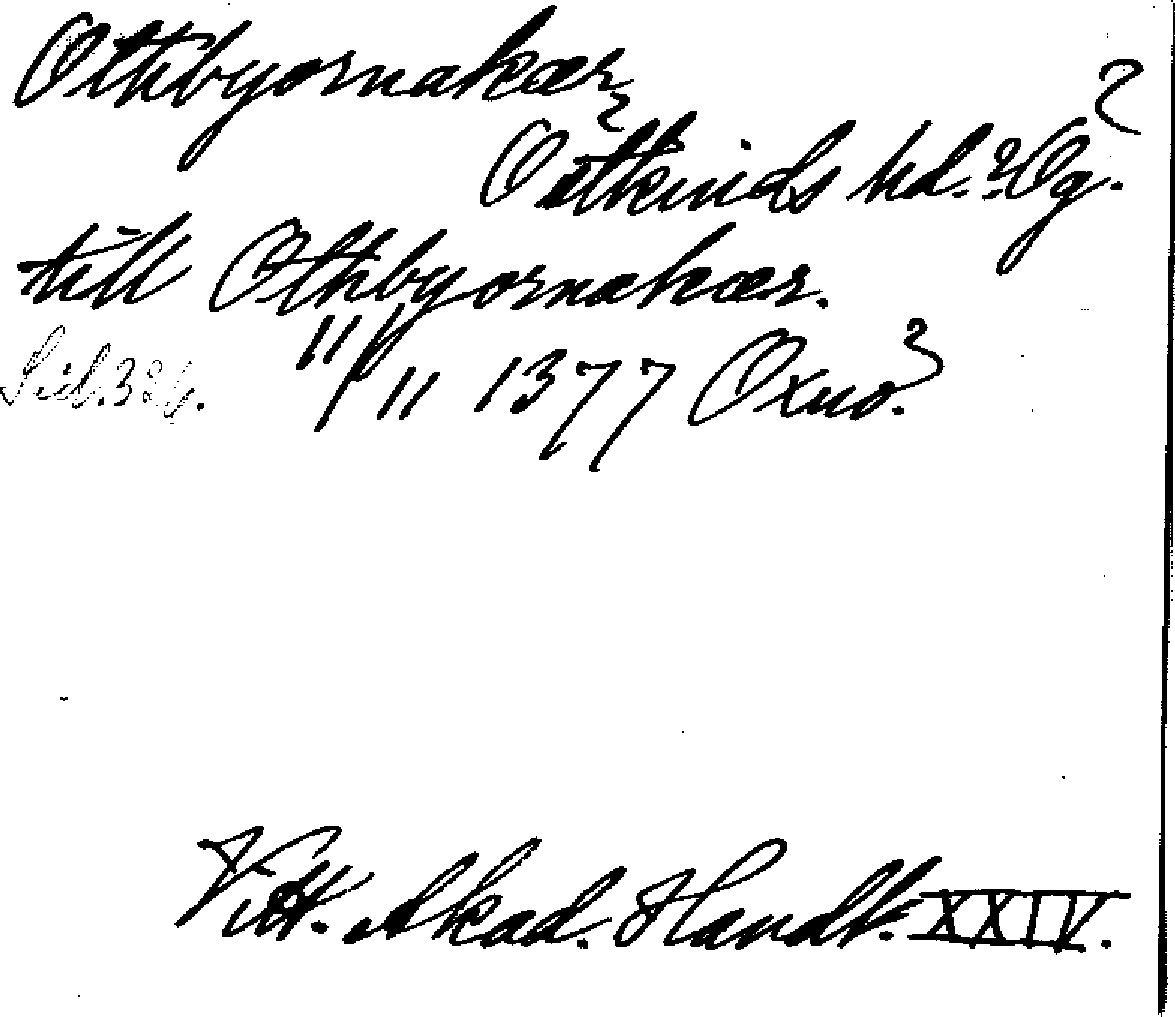 Othbyornakær ?
Östkinds hd.? Ög. ?
till Othbyornakær.
Sid. 386. 11/11 1377 Oxno. ?
Vitt. Akad. Handl. XXIV.